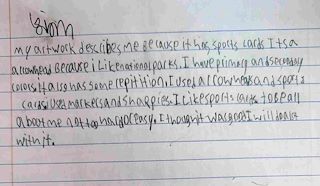 my artwork describes me Because it has sports cards Its a
arrowhead Because i Like national parks. I have primary and secondary
colors. It also has some repitition. I used arrowheads and sports
cards. I used markers and sharpies. I like sports cards to be all
about me not too hard or easy. I thought it was good I will
with it.